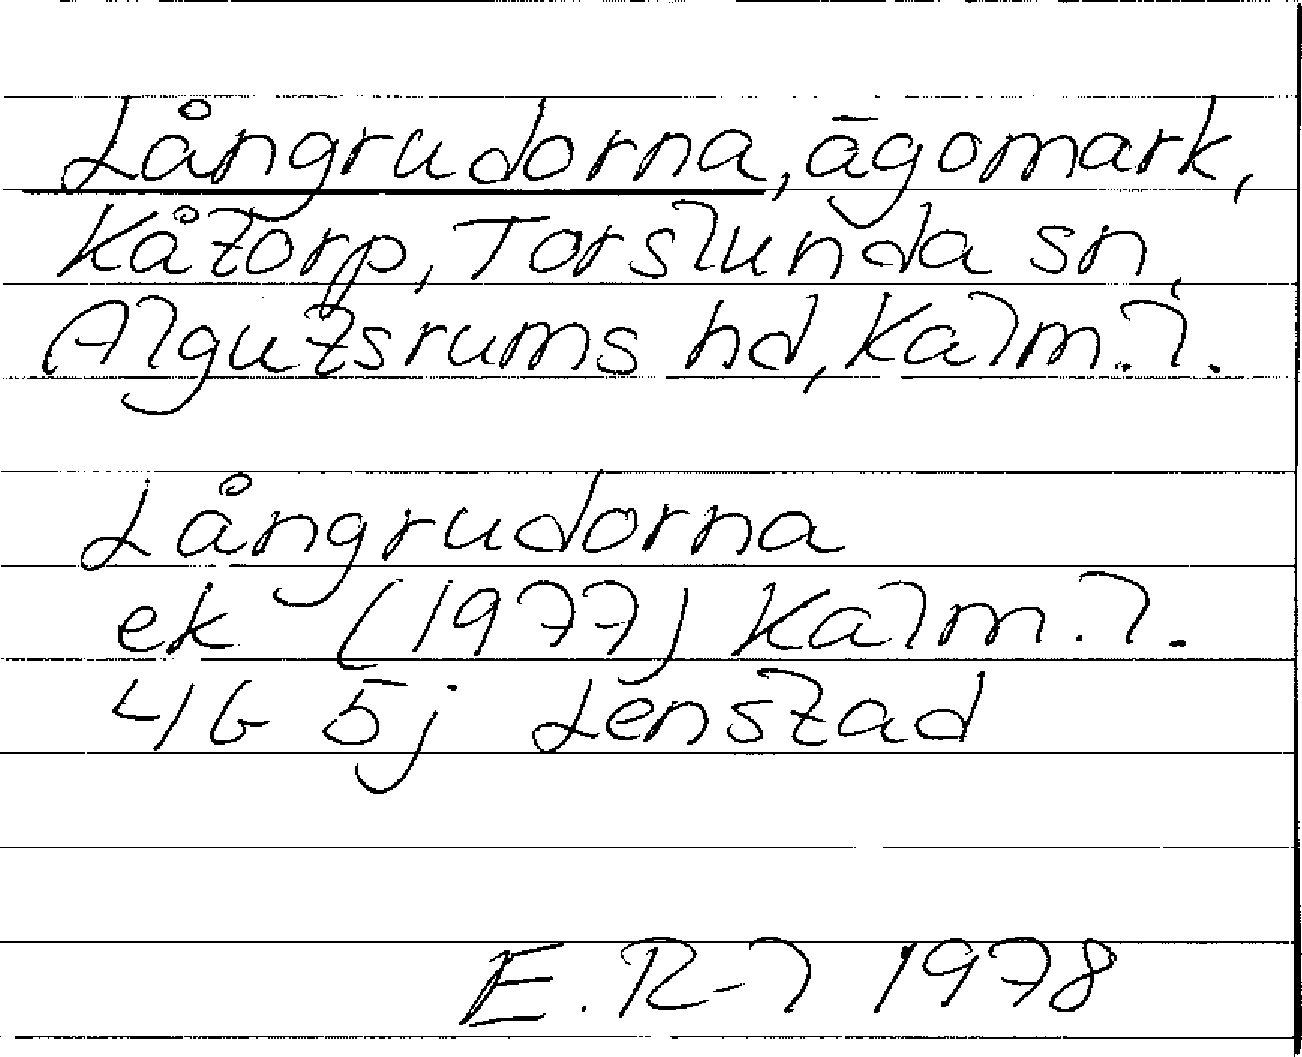 Långrudorna, ägomark,
Kåtorp, Torslunda sn,
Algutsrums hd, Kalm. l.
Långrudorna
ek (1977) Kalm. l.
4G 5j Lenstad
E. R-l 1978